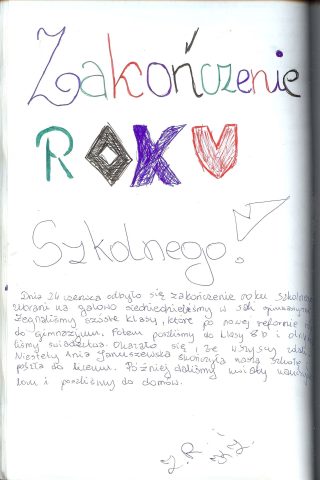 Zakończenie
ROKU
Szkolnego!
Dnia 24 czerwca odbyło się zakończenie roku szkolnego
ubrani na galowo siedzieliśmy w sali gimnastycznej
Żegnaliśmy szóste klasy, które po nowej reformie
do gimnazjum. Potem poszliśmy do klasy
liśmy świadectwa. Okazało się, że wszyscy zdali
Niestety Ania Januszewska skończyła naszą szkołę
poszła do liceum. Później daliśmy kwiaty
lom i poszliśmy do domów.